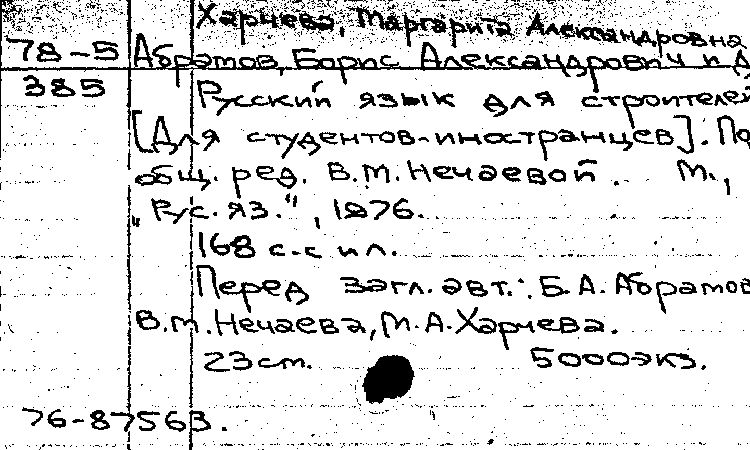 Харчева, Маргарита Александровна
78-5 Абрамов, Борис Александрович и д
385 Русский язык для строителей
[Для студентов-иностранцев]. По
общ. ред. В.М. Нечаевой. М.,
"Рус. яз.", 1976.
168 с. с ил.
Перед загл. авт.: Б.А. Абрамов
В.М. Нечаева, М.А. Харчева.
23 cm. 5000 экз.
76-87563.